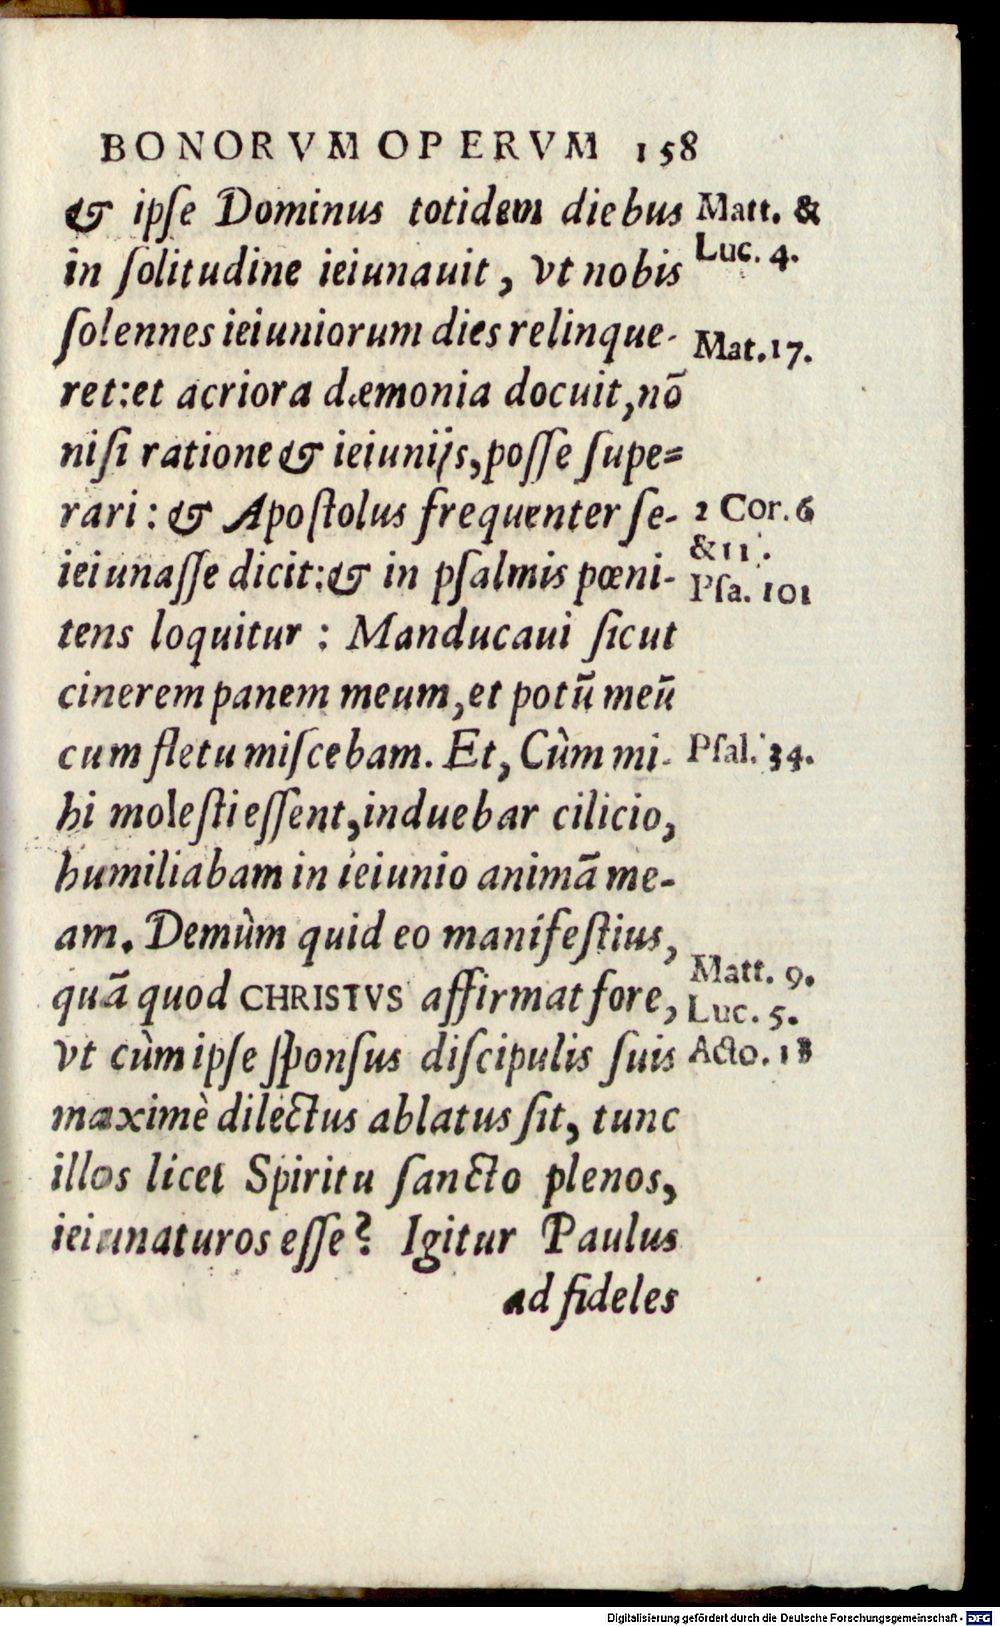 BONORVM OPERVM 158
& ipſe Dominus totidem diebus
in ſolitudine ieiunauit, vt nobis
ſolennes ieiuniorum dies relinque-
ret: et acriora dæmonia docuit, nō
niſi ratione & ieiunijs, poſſe ſupe=
rari: & Apoſtolus frequenter ſe-
ieiunaſſe dicit: & in pſalmis pœni-
tens loquitur : Manducaui ſicut
cinerem panem meum, et potū meū
cum fletu miſcebam. Et, Cùm mi-
hi moleſti eſſent, induebar cilicio,
humiliabam in ieiunio animā me-
am. Demùm quid eo manifeſtius,
quā quod CHRISTVS affirmat fore,
vt cùm ipſe ſponſus diſcipulis ſuis
maximè dilectus ablatus ſit, tunc
illos licet Spiritu ſancto plenos,
ieiunaturos eſſe? Igitur Paulus
ad fideles
Matt. &
Luc. 4.
Mat. 17.
2 Cor. 6
& 11.
Pſa. 101
Pſal. 34.
Matt. 9.
Luc. 5.
Acto. 13
Digitalisierung gefördert durch die Deutsche Forschungsgemeinschaft - DFG